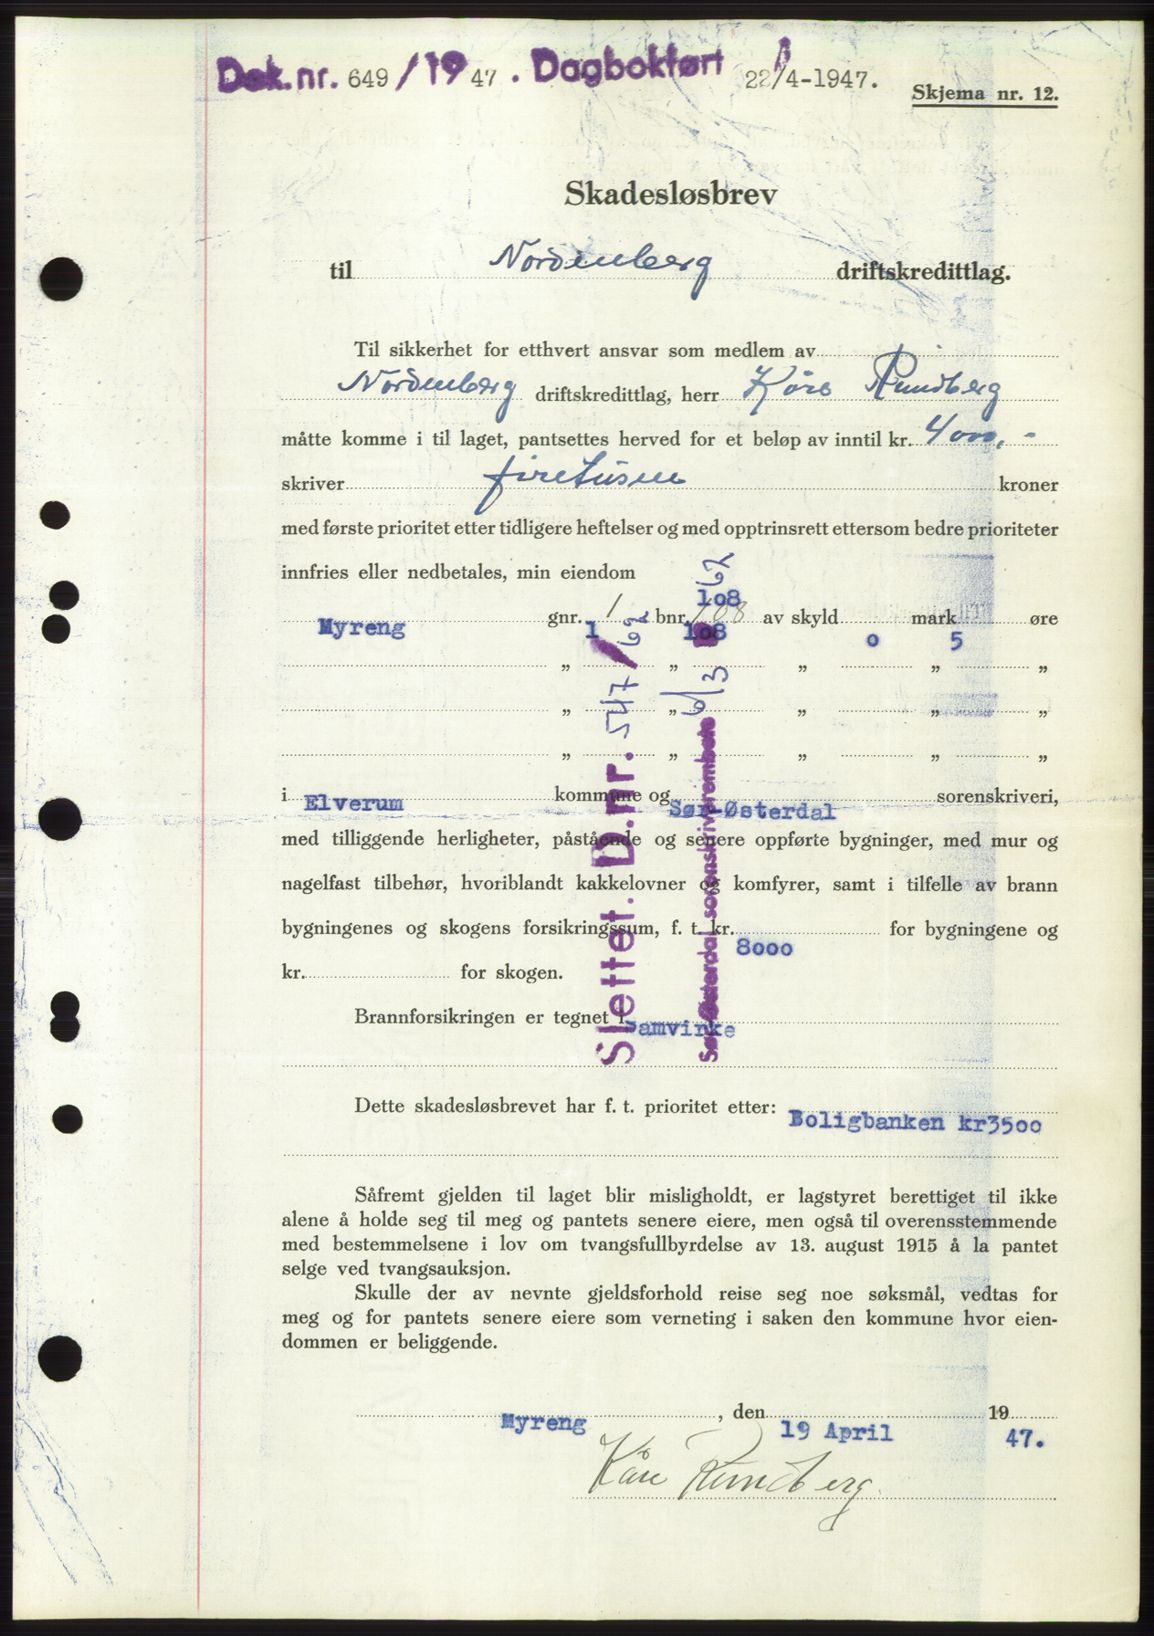 Dok.nr. 649/1947. Dagboktført 22/4-1947.
Skjema nr. 12.
Skadesløsbrev
til Nordenberg driftskredittlag.
Til sikkerhet for etthvert ansvar som medlem av
Nordenberg driftskredittlag, herr Kåre Rundberg
måtte komme i til laget, pantsettes herved for et beløp av inntil kr. 4000,-
skriver firetusen kroner
med første prioritet etter tidligere heftelser og med opptrinsrett ettersom bedre prioriteter
innfries eller nedbetales, min eiendom
108
Myreng gnr. 1 bnr. 108 av skyld mark øre
1 108 0 5
„ „ „ „ „
„ „ „ „ „
„ „ „ „ „
i Elverum kommune og Sør-Østerdal sorenskriveri,
med tilliggende herligheter, påstående og senere oppførte bygninger, med mur og
nagelfast tilbehør, hvoriblandt kakkelovner og komfyrer, samt i tilfelle av brann
bygningenes og skogens forsikringssum, f. t. kr. 8000 for bygningene og
kr. for skogen.
Brannforsikringen er tegnet i Samvirke
Dette skadesløsbrevet har f. t. prioritet etter: Boligbanken kr3500
Såfremt gjelden til laget blir misligholdt, er lagstyret berettiget til ikke
alene å holde seg til meg og pantets senere eiere, men også til overensstemmende
med bestemmelsene i lov om tvangsfullbyrdelse av 13. august 1915 å la pantet
selge ved tvangsauksjon.
Skulle der av nevnte gjeldsforhold reise seg noe søksmål, vedtas for
meg og for pantets senere eiere som verneting i saken den kommune hvor eien-
dommen er beliggende.
Myreng, den 19 April 1947.
Kåre Rundberg
Slettet. D.nr. 547/62
Sør-Østerdal sorenskriverembete 6/3 62